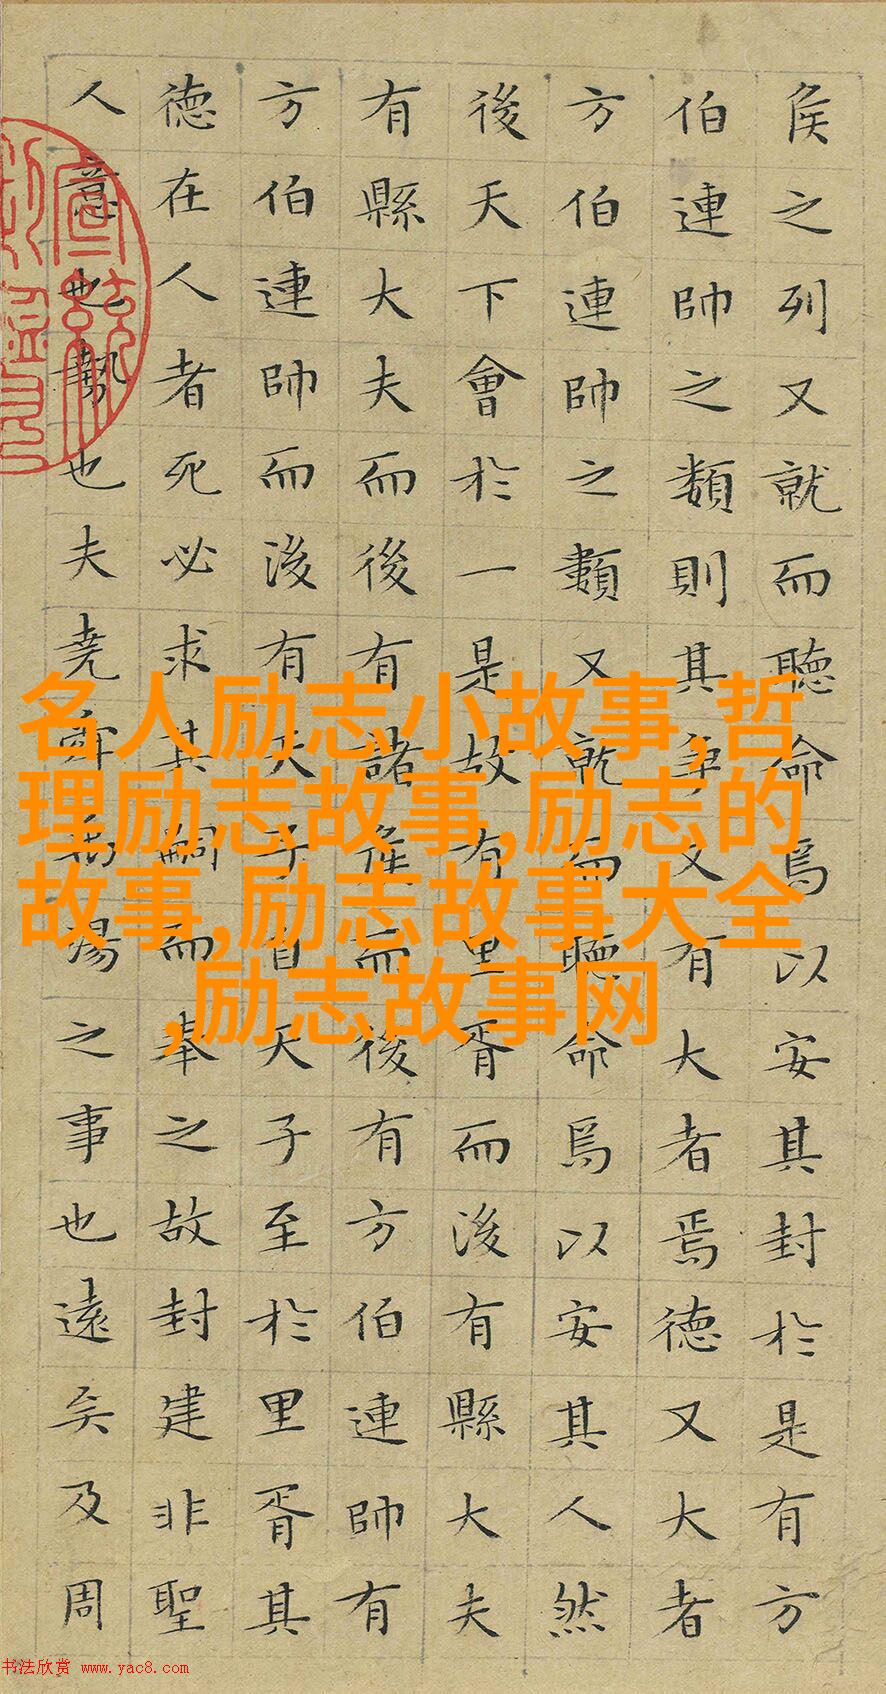 侯之列又就而聽命焉以安其封於是有方
伯連帥之類則其爭又有大者焉德又大者
方伯連帥之類又就而聽命焉以安其人然
後天下會於一是故有里胥而後有縣大夫
有縣大夫而後有諸侯而後有方伯連帥有
方伯連帥而後有天子自天子至於里胥其
德在人者死必求其嗣而奉之故封建非聖
人意也勢也夫堯舜禹湯之事也遠矣及周
名人励志小故事,哲
理励志故事,励志的
故事,励志故事大全
,励志故事网
书法欣赏 www.yac8.com